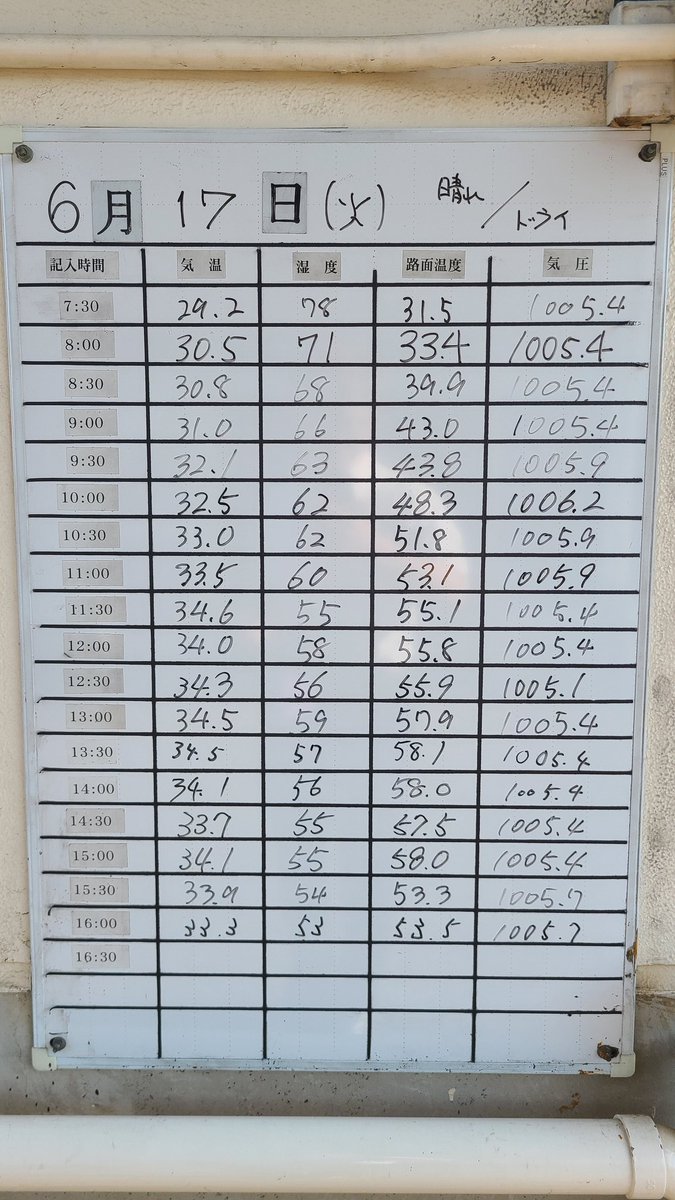 6月 17日(火) 晴れ/ドライ
PLUS
記入時間 気温 湿度 路面温度 気圧
7:30 29.2 78 31.5 1005.4
8:00 30.5 71 33.4 1005.4
8:30 30.8 68 39.9 1005.4
9:00 31.0 66 43.0 1005.4
9:30 32.1 63 43.8 1005.9
10:00 32.5 62 48.3 1006.2
10:30 33.0 62 51.8 1005.9
11:00 33.5 60 53.1 1005.9
11:30 34.6 55 55.1 1005.4
12:00 34.0 58 55.8 1005.4
12:30 34.3 56 55.9 1005.1
13:00 34.5 59 57.9 1005.4
13:30 34.5 57 58.1 1005.4
14:00 34.1 56 58.0 1005.4
14:30 33.7 55 57.5 1005.4
15:00 34.1 55 58.0 1005.4
15:30 33.9 54 53.3 1005.7
16:00 33.3 53 53.5 1005.7
16:30